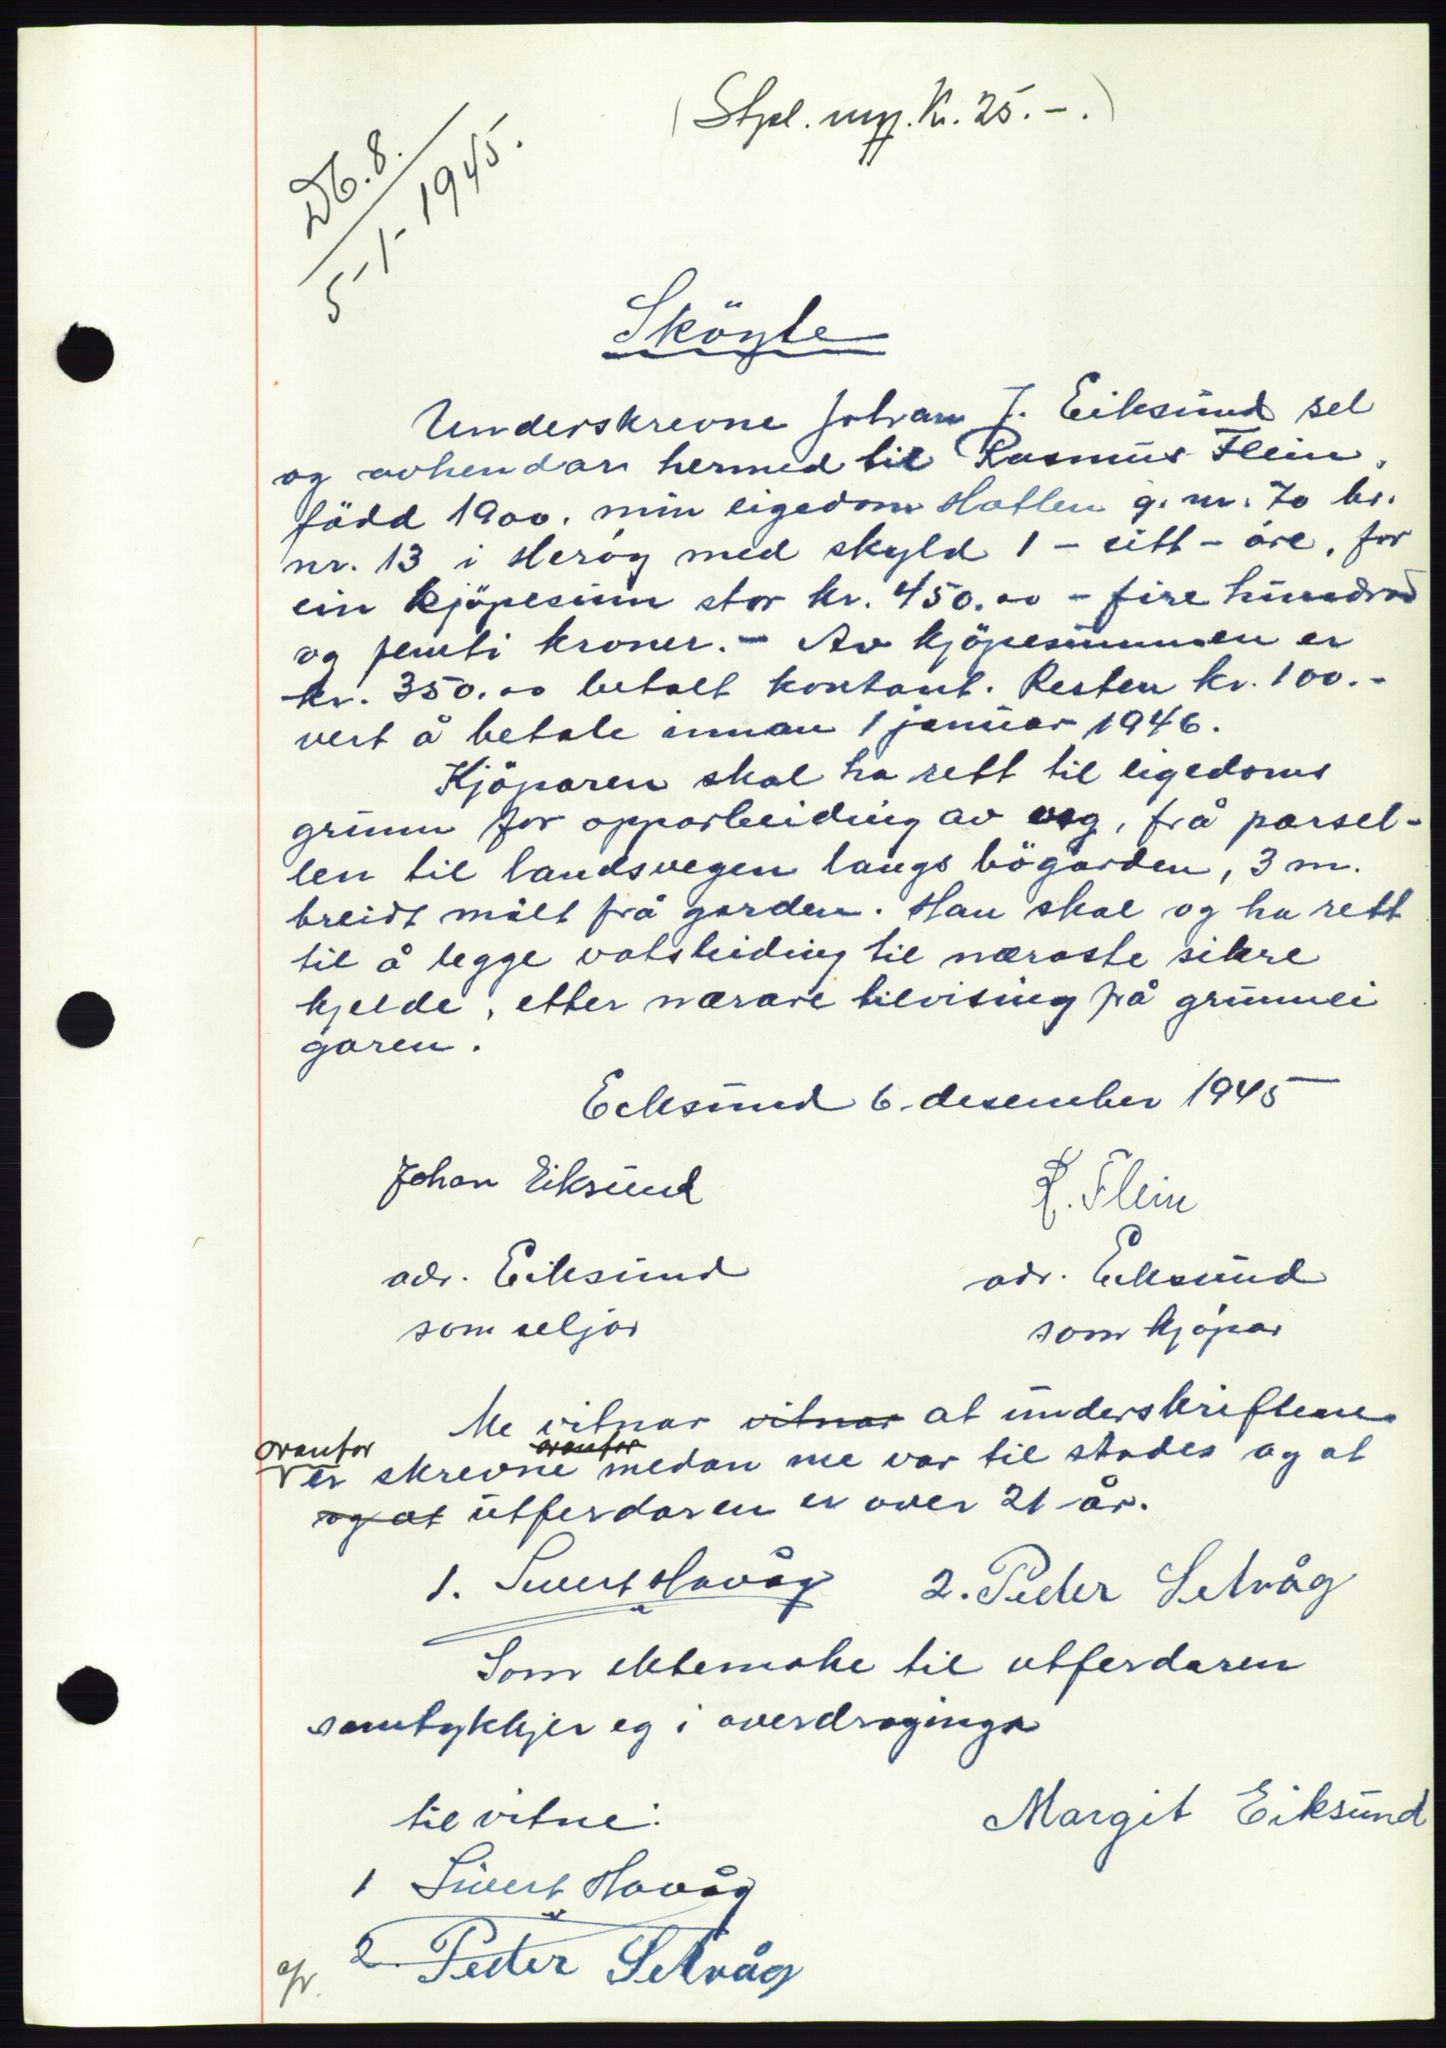 (Stpl. mrk. Kr. 25.-.)
Db. 8.
5-1-1945.
Sköyte
Underskrevne Johan J. Eiksund sel
og avhendar hermed til Rasmus Flein,
född 1900. min eigedom Hatlen g. nr. 70 br.
nr. 13 i Heröy med skyld 1 - eitt - öre, for
ein kjöpesum stor kr. 450.00 - fire hundrad
og femti kroner. - Av kjöpesummen er
kr. 350.00 betalt kontant. Resten kr. 100.-
vert å betale innan 1 januar 1946.
Kjöparen skal ha rett til eigedoms
grunn for opparbeiding av veg, frå parsel-
len til landsvegen langs bögarden, 3 m.
breidt målt frå garden. Han skal og ha rett
til å legge vatsleiding til næraste sikre
kjelde, etter nærare tilvising frå grunnei
garen.
Eiksund 6. desember 1945
Johan Eiksund R. Flein
adr. Eiksund adr. Eiksund
som seljar som kjöpar
Me vitnar vitnar at underskriftene
ovanfor er skrevne ovanfor medan me var til stades og at
og at utferdaren er over 21 år.
1. Sivert Havåg 2. Peder Selvåg
Som ektemake til utferdaren
samtykkjer eg i overdraginga
til vitne: Margit Eiksund
1 Sivert Havåg
2. Peder Selvåg